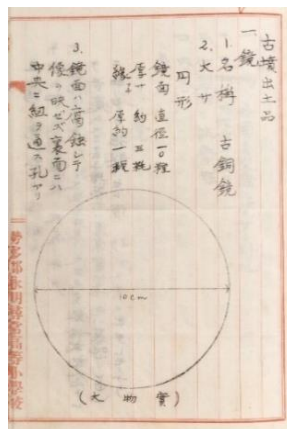 古墳出土品
一、鏡
1. 名称 古銅鏡
2. 大サ
円形
鏡面 直径一〇糎
厚サ 約三粍
縁ノ 厚約一糎
3. 鏡面ハ腐蝕シテ
像ヲ映ゼズ裏面ニハ
中央ニ紐ヲ通ス孔アリ
10cm
(実物大)
勢多郡永明尋常高等小学校